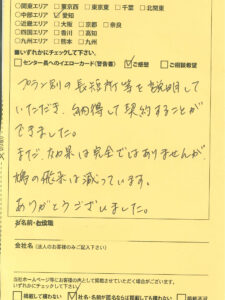 □関東エリア □東京西 □東京東 □千葉 □北関東
□中部エリア ☑愛知
□近畿エリア □大阪 □京都 □奈良
□四国エリア □香川 □高知
□九州エリア □熊本 □九州
■いずれかにチェックして下さい。
□センター長へのイエローカード(警告書) ☑ご感想 □ご相談希望
プラン別の長短所等を説明して
いただき、納得して契約することが
できました。
まだ、効果は完全ではありませんが、
鳩の飛来は減っています。
ありがとうございました。
お名前・お役職
会社名 (法人のお客様のみご記入下さい)
当社ホームページ等にお客様の声として掲載させていただく場合がございます。
いずれかにチェックして下さい。
□掲載して構わない ☑社名・名前が匿名ならば掲載しても構わない